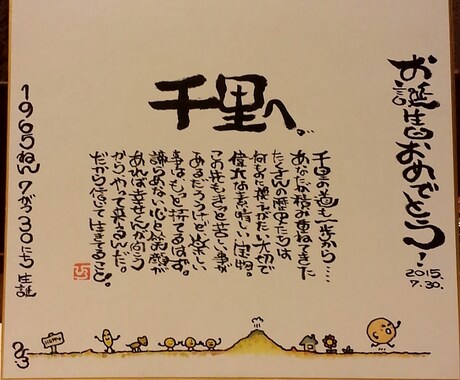 お誕生日おめでとう！
2015.
7.30.
千里へ。
千里の道も一歩から……
あなたが積み重ねてきた
たくさんの歴史たちは
何ものに換えがたい大切で
偉大な素晴しい宝物。
この先もきっと苦しい事が
あるだろうけど楽しい
事はもっと待てるはず。
諦らめない心と笑顔が
あれば幸せんが向こう
からやって来るんだ。
だから信じて生きること。
1965ねん7が30にち 生誕
HAPPY